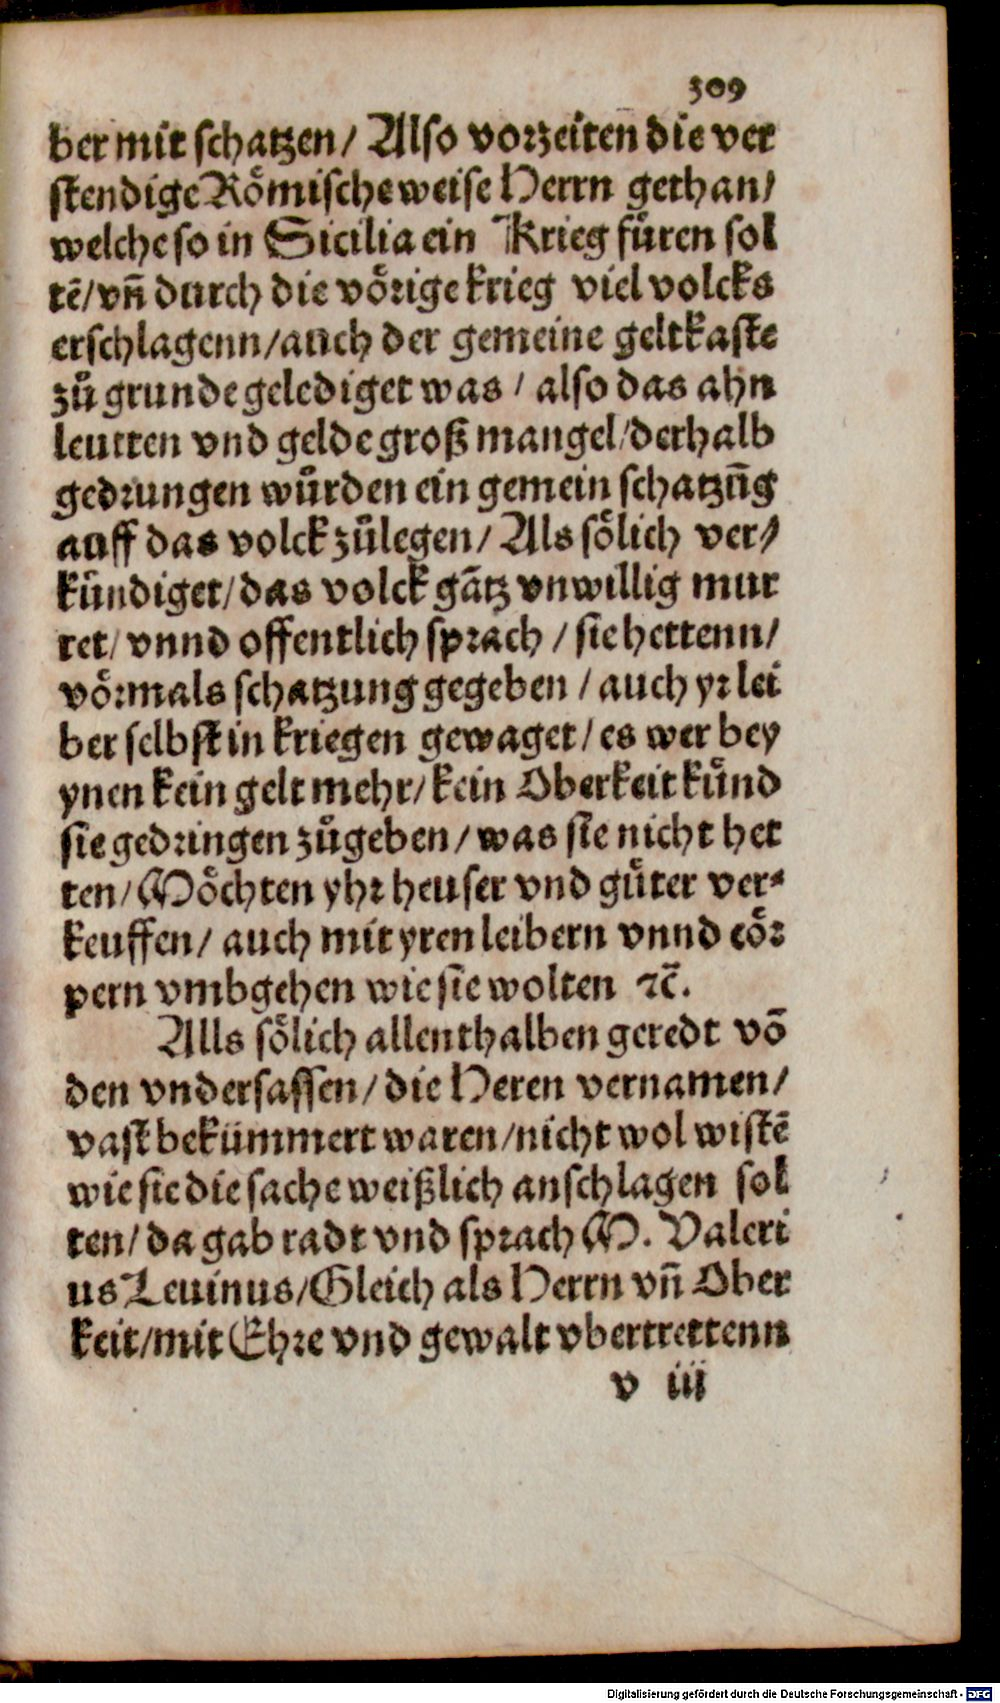 309
ber mit schatzen/ Also vorzeiten die ver
stendige Römische weise Herrn gethan/
welche so in Sicilia ein Krieg füren sol
tē/ vñ durch die vörige krieg viel volcks
erschlagenn/ auch der gemeine geltkaste
zů grunde gelediget was / also das ahn
leutten vnd gelde groß mangel/ derhalb
gedrungen würden ein gemein schatzūg
auff das volck zůlegen/ Als sölich ver/
kündiget/ das volck gātz vnwillig mur
ret/ vnnd offentlich sprach / sie hettenn/
vörmals schatzung gegeben / auch yr lei
ber selbst in kriegen gewaget/ es wer bey
ynen kein gelt mehr/ kein Oberkeit künd
sie gedringen zůgeben/ was sie nicht het
ten/ Möchten yhr heuser vnd güter ver-
keuffen/ auch mit yren leibern vnnd cör
pern vmbgehen wie sie wolten ꝛc̄.
Alls sölich allenthalben geredt vō
den vndersassen/ die Heren vernamen/
vast bekümmert waren/ nicht wol wistē
wie sie die sache weißlich anschlagen sol
ten/ da gab radt vnd sprach M. Valeri
us Leuinus/ Gleich als Herrn vñ Ober
keit/ mit Ehre vnd gewalt vbertrettenn
v iii
Digitalisierung gefördert durch die Deutsche Forschungsgemeinschaft - DFG